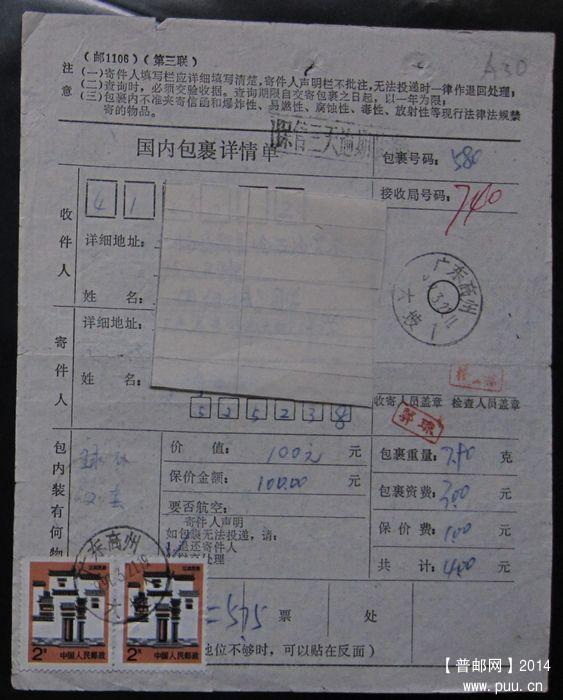 (邮1106)(第三联)
A30
注意
(一)寄件人填写栏应详细填写清楚,寄件人声明栏不批注,无法投递时一律作退回处理;
(二)查询时,必须交验收据。查询期限自交寄包裹之日起,以一年为限;
(三)包裹内不准夹寄信函和爆炸性、易燃性、腐蚀性、毒性、放射性等现行法律法规禁寄的物品。
国内包裹详情单
包裹号码:580
接收局号码:740
收件人
4 1
详细地址:
姓 名:
广东高州
大坡
寄件人
详细地址:
姓 名:
5 2 5 2 3 8
收寄人员盖章
检查人员盖章
包内装有何物
价 值:100元 元
保价金额:100.00 元
要否航空:
寄件人声明
如包裹无法投递,请:
1.退还寄件人
处理
包裹重量:740 克
包裹资费:300 元
保 价 费:100 元
共 计:400 元
广东高州
大
2分 中国人民邮政
2分 中国人民邮政
=575 票 处
地位不够时,可以贴在反面)
【普邮网】2014
www.puu.cn